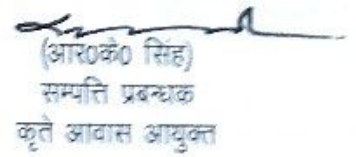 (आर0के0 सिंह)
सम्पत्ति प्रबन्धक
कृते आवास आयुक्त